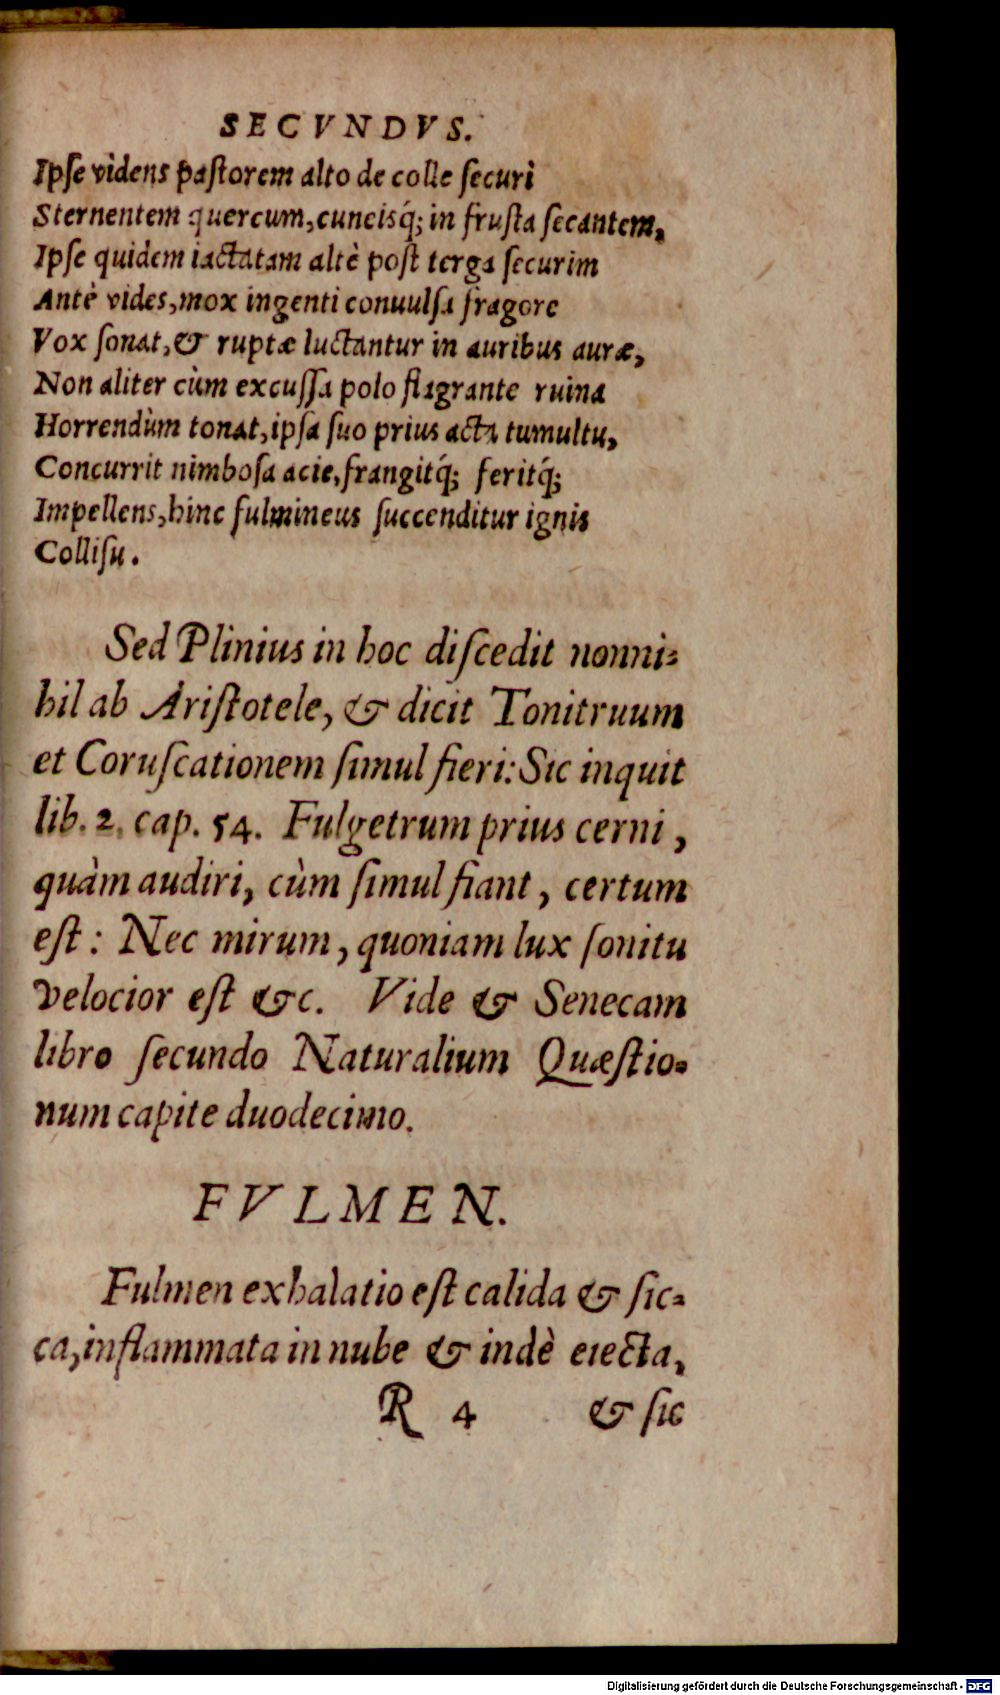 SECVNDVS.
Ipse videns pastorem alto de colle securi
Sternentem quercum, cuneisq́; in frusta secantem,
Ipse quidem iactatam altè post terga securim
Antè vides, mox ingenti conuulsa fragore
Vox sonat, & ruptæ luctantur in auribus auræ,
Non aliter cùm excussa polo flagrante ruina
Horrendùm tonat, ipsa suo prius acta tumultu,
Concurrit nimbosa acie, frangitq́; feritq́;
Impellens, hinc fulmineus succenditur ignis
Collisu.
Sed Plinius in hoc discedit nonni-
hil ab Aristotele, & dicit Tonitruum
et Coruscationem simul fieri: Sic inquit
lib. 2. cap. 54. Fulgetrum prius cerni,
quàm audiri, cùm simul fiant, certum
est: Nec mirum, quoniam lux sonitu
velocior est &c. Vide & Senecam
libro secundo Naturalium Quæstio-
num capite duodecimo.
FVLMEN.
Fulmen exhalatio est calida & sic-
ca, inflammata in nube & indè eiecta,
R 4 & sic
Digitalisierung gefördert durch die Deutsche Forschungsgemeinschaft - DFG